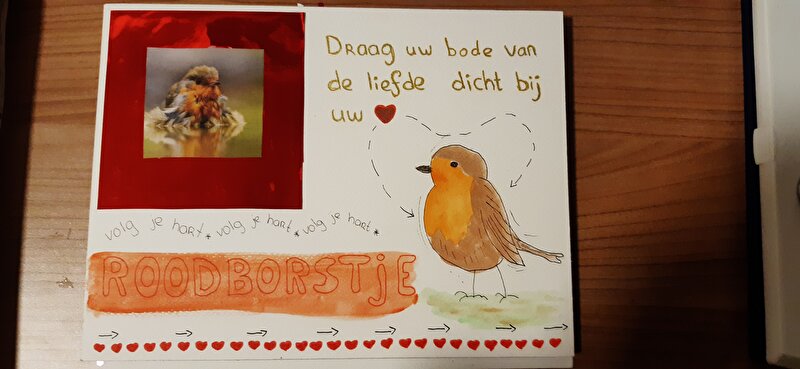 Draag uw bode van
de liefde dicht bij
uw ❤
volg je hart * volg je hart * volg je hart *
ROODBORSTjE